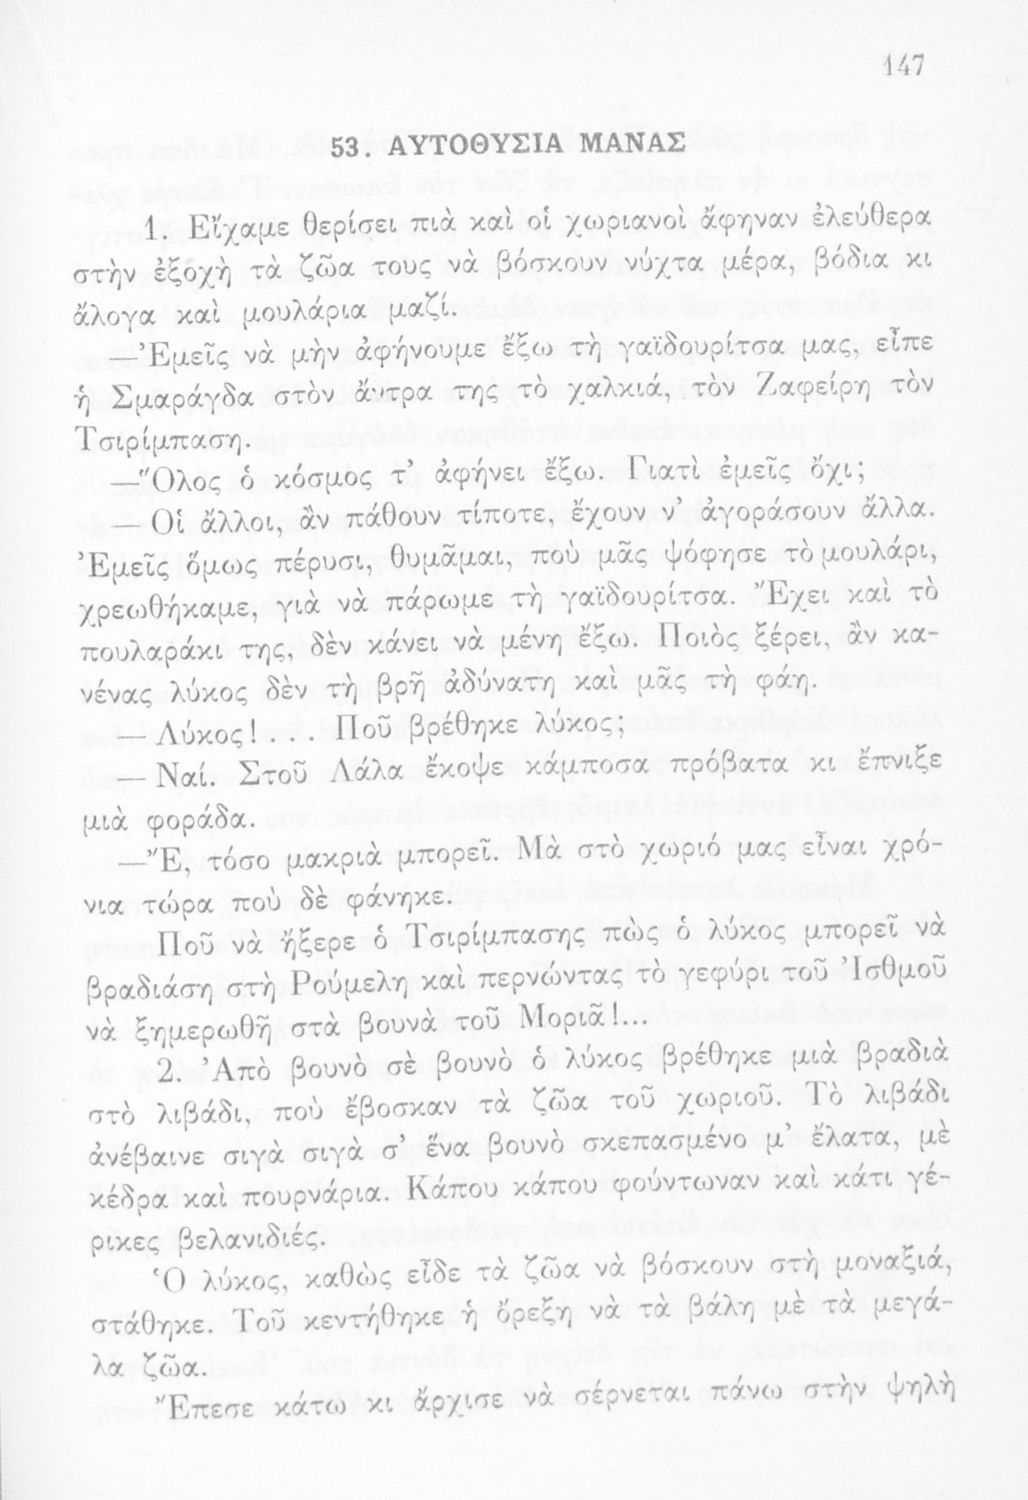 147
53. ΑΥΤΟΘΥΣΙΑ ΜΑΝΑΣ
1. Εἴχαμε θερίσει πιὰ καὶ οἱ χωριανοὶ ἄφηναν ἐλεύθερα
στὴν ἐξοχὴ τὰ ζῶα τους νὰ βόσκουν νύχτα μέρα, βόδια κι
ἄλογα καὶ μουλάρια μαζί.
—Ἐμεῖς νὰ μὴν ἀφήνουμε ἔξω τὴ γαϊδουρίτσα μας, εἶπε
ἡ Σμαράγδα στὸν ἄντρα της τὸ χαλκιά, τὸν Ζαφείρη τὸν
Τσιρίμπαση.
—Ὅλος ὁ κόσμος τ’ ἀφήνει ἔξω. Γιατὶ ἐμεῖς ὄχι;
— Οἱ ἄλλοι, ἂν πάθουν τίποτε, ἔχουν ν’ ἀγοράσουν ἄλλα.
Ἐμεῖς ὅμως πέρυσι, θυμᾶμαι, ποὺ μᾶς ψόφησε τὸ μουλάρι,
χρεωθήκαμε, γιὰ νὰ πάρωμε τὴ γαϊδουρίτσα. Ἔχει καὶ τὸ
πουλαράκι της, δὲν κάνει νὰ μένη ἔξω. Ποιὸς ξέρει, ἂν κα-
νένας λύκος δὲν τὴ βρῆ ἀδύνατη καὶ μᾶς τὴ φάη.
— Λύκος! . . . Ποῦ βρέθηκε λύκος;
— Ναί. Στοῦ Λάλα ἔκοψε κάμποσα πρόβατα κι ἔπνιξε
μιὰ φοράδα.
—Ἔ, τόσο μακριὰ μπορεῖ. Μὰ στὸ χωριό μας εἶναι χρό-
νια τώρα ποὺ δὲ φάνηκε.
Ποῦ νὰ ἤξερε ὁ Τσιρίμπασης πὼς ὁ λύκος μπορεῖ νὰ
βραδιάση στὴ Ρούμελη καὶ περνώντας τὸ γεφύρι τοῦ Ἰσθμοῦ
νὰ ξημερωθῆ στὰ βουνὰ τοῦ Μοριᾶ!...
2. Ἀπὸ βουνὸ σὲ βουνὸ ὁ λύκος βρέθηκε μιὰ βραδιὰ
στὸ λιβάδι, ποὺ ἔβοσκαν τὰ ζῶα τοῦ χωριοῦ. Τὸ λιβάδι
ἀνέβαινε σιγὰ σιγὰ σ’ ἕνα βουνὸ σκεπασμένο μ’ ἔλατα, μὲ
κέδρα καὶ πουρνάρια. Κάπου κάπου φούντωναν καὶ κάτι γέ-
ρικες βελανιδιές.
Ὁ λύκος, καθὼς εἶδε τὰ ζῶα νὰ βόσκουν στὴ μοναξιά,
στάθηκε. Τοῦ κεντήθηκε ἡ ὄρεξη νὰ τὰ βάλη μὲ τὰ μεγά-
λα ζῶα.
Ἔπεσε κάτω κι ἄρχισε νὰ σέρνεται πάνω στὴν ψηλὴ